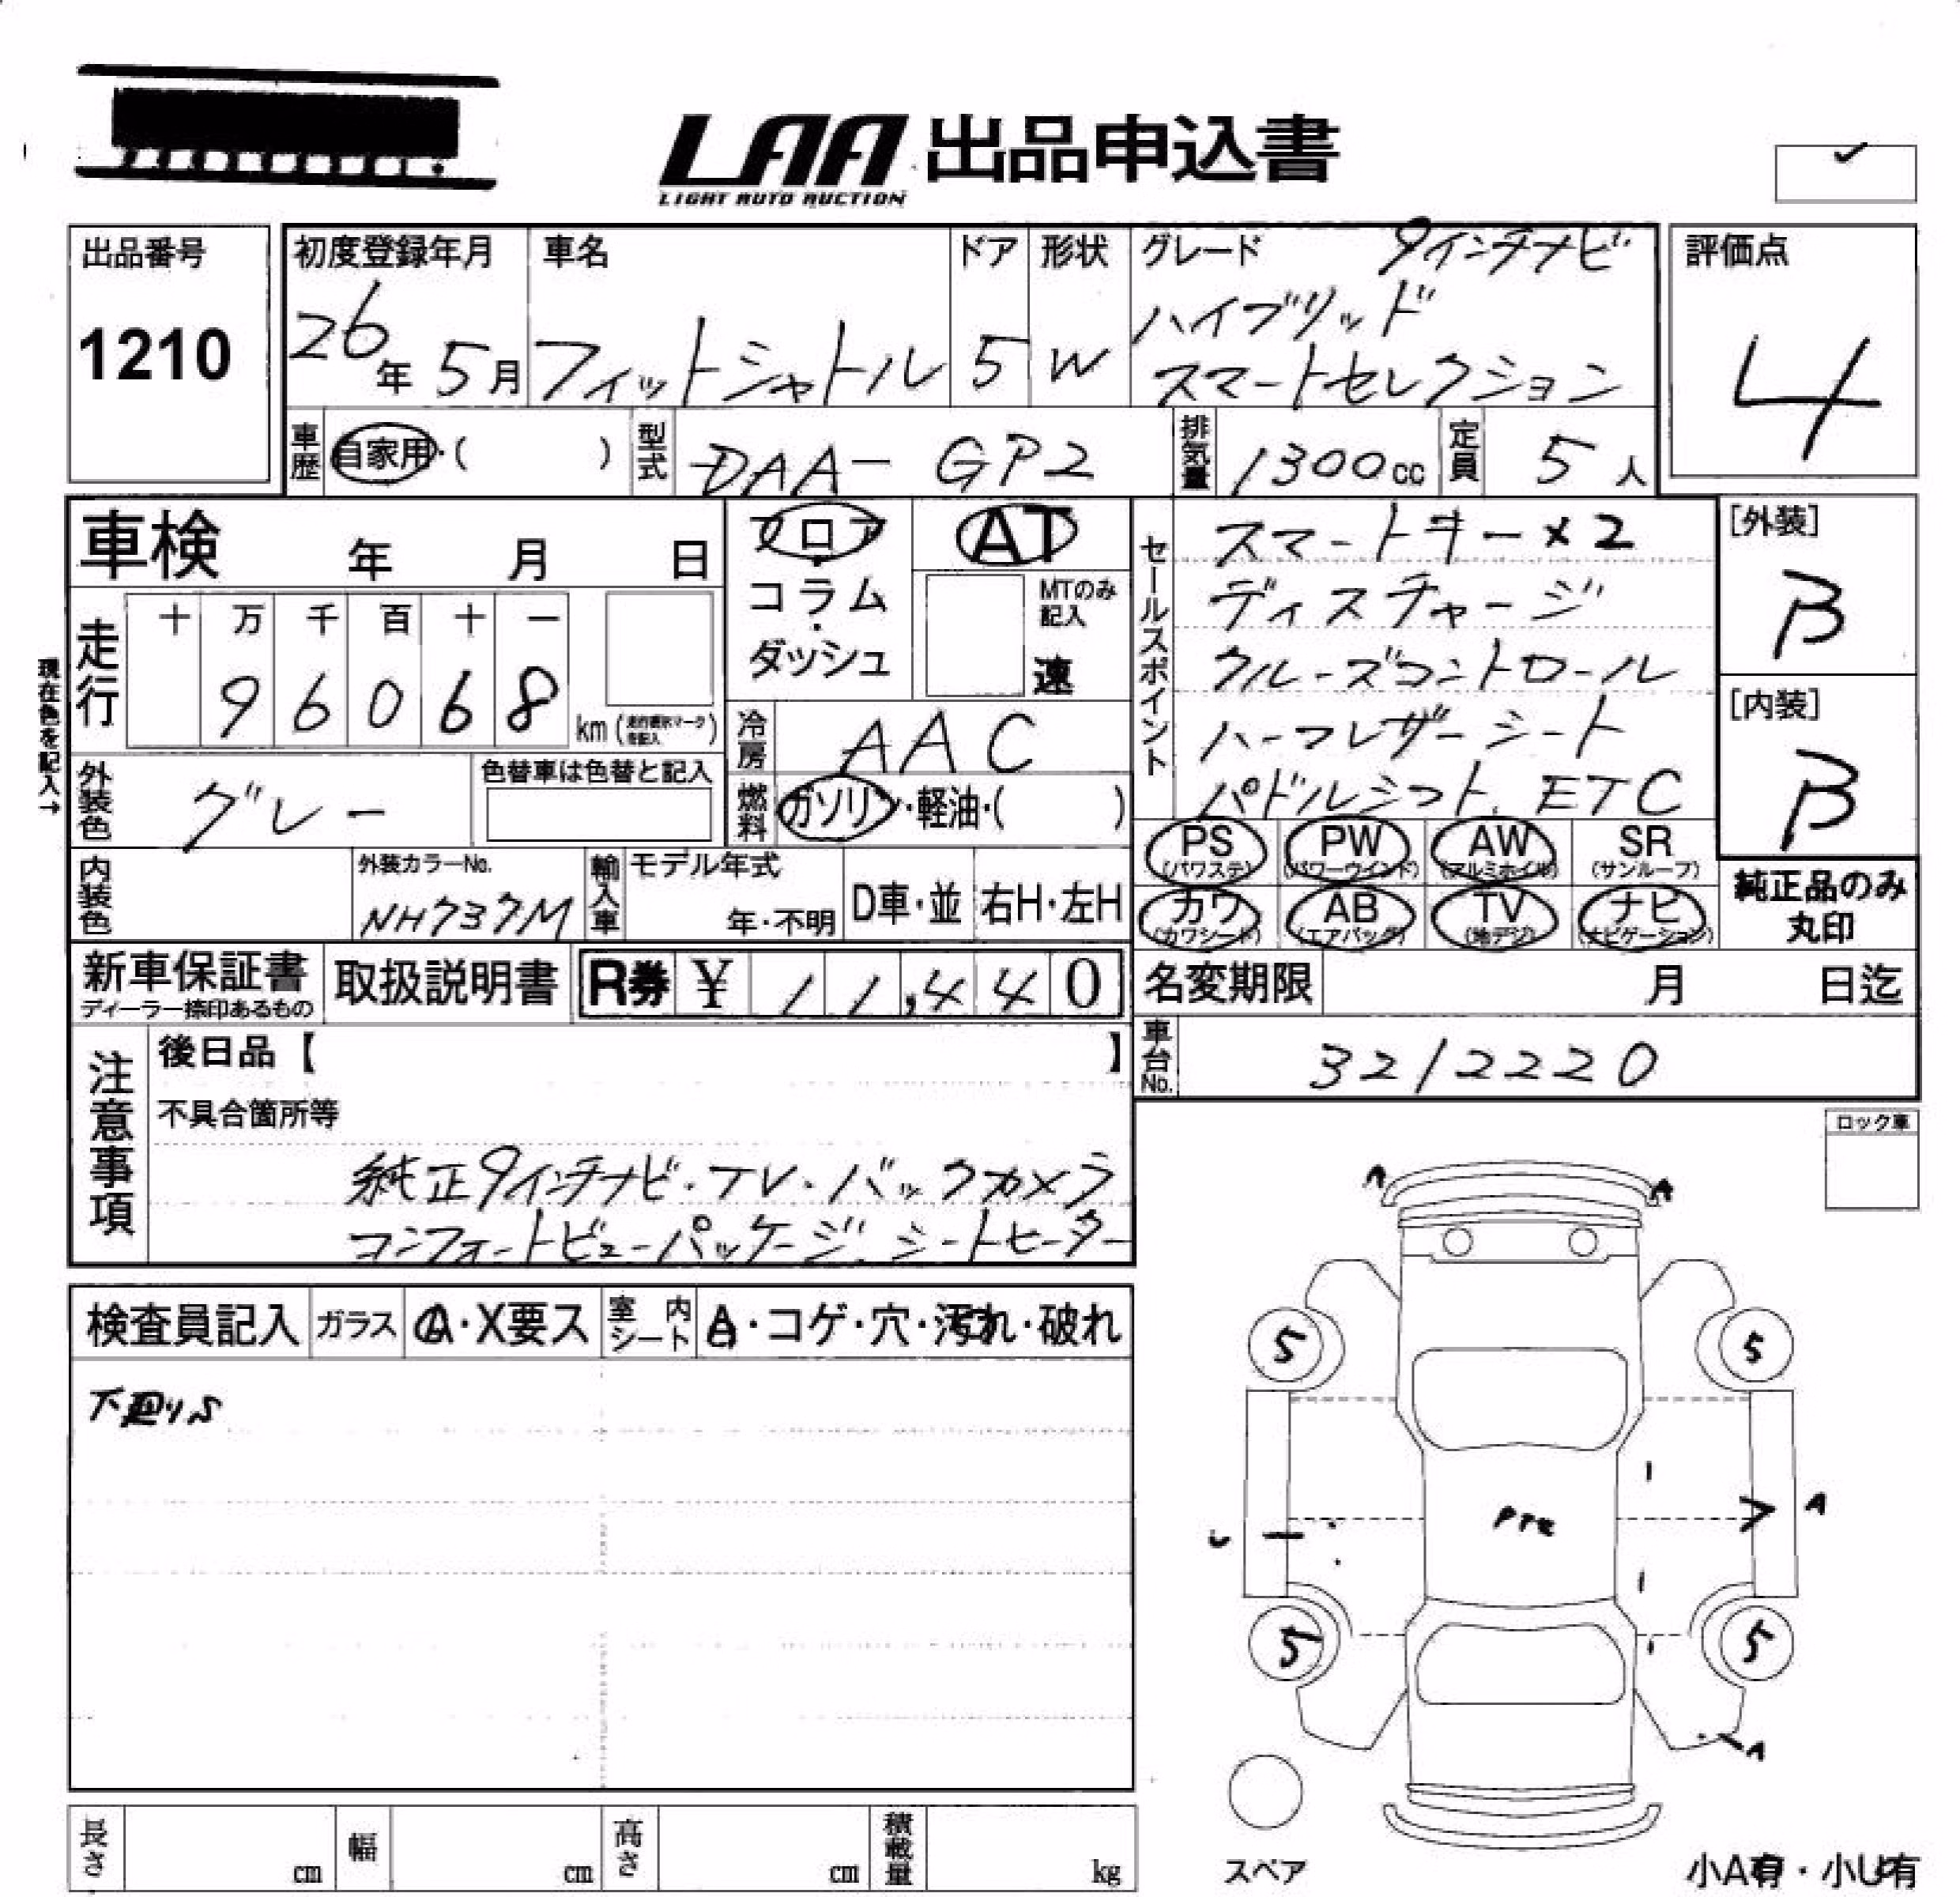 LAA 出品申込書
LIGHT AUTO AUCTION
出品番号
1210
初度登録年月
26年 5月
車名
フィットシャトル
ドア
5
形状
W
グレード 9インチナビ
ハイブリッド
スマートセレクション
評価点
4
車歴 自家用・( )
型式 DAA-GP2
排気量 1300cc
定員 5人
車検 年 月 日
フロア・コラム・ダッシュ
AT
MTのみ記入
速
走行
十 万 千 百 十 一
9 6 0 6 8
km ( )
現在色を記入→
外装色 グレー
色替車は色替と記入
冷房 AAC
燃料 ガソリン・軽油・( )
内装色
外装カラーNo.
NH737M
輸入車
モデル年式
年・不明
D車・並
右H・左H
セールスポイント
スマートキー×2
ディスチャージ
クルーズコントロール
ハーフレザーシート
パドルシフト、ETC
[外装]
B
[内装]
B
PS (パワステ)
PW (パワーウインド)
AW (アルミホイル)
SR (サンルーフ)
カワ (カワシート)
AB (エアバック)
TV (地デジ)
ナビ (ナビゲーション)
純正品のみ
丸印
新車保証書
ディーラー捺印あるもの
取扱説明書
R券 ¥ 11,440
名変期限 月 日迄
車台No. 3212220
注意事項
後日品【 】
不具合箇所等
純正9インチナビ・TV・バックカメラ
コンフォートビューパッケージ、シートヒーター
ロック車
検査員記入
ガラス A・X要ス
室内シート A・コゲ・穴・汚れ・破れ
下廻りS
A A
5 5
A
5 5
A
スペア
長さ cm
幅 cm
高さ cm
積載量 kg
小A有・小U有